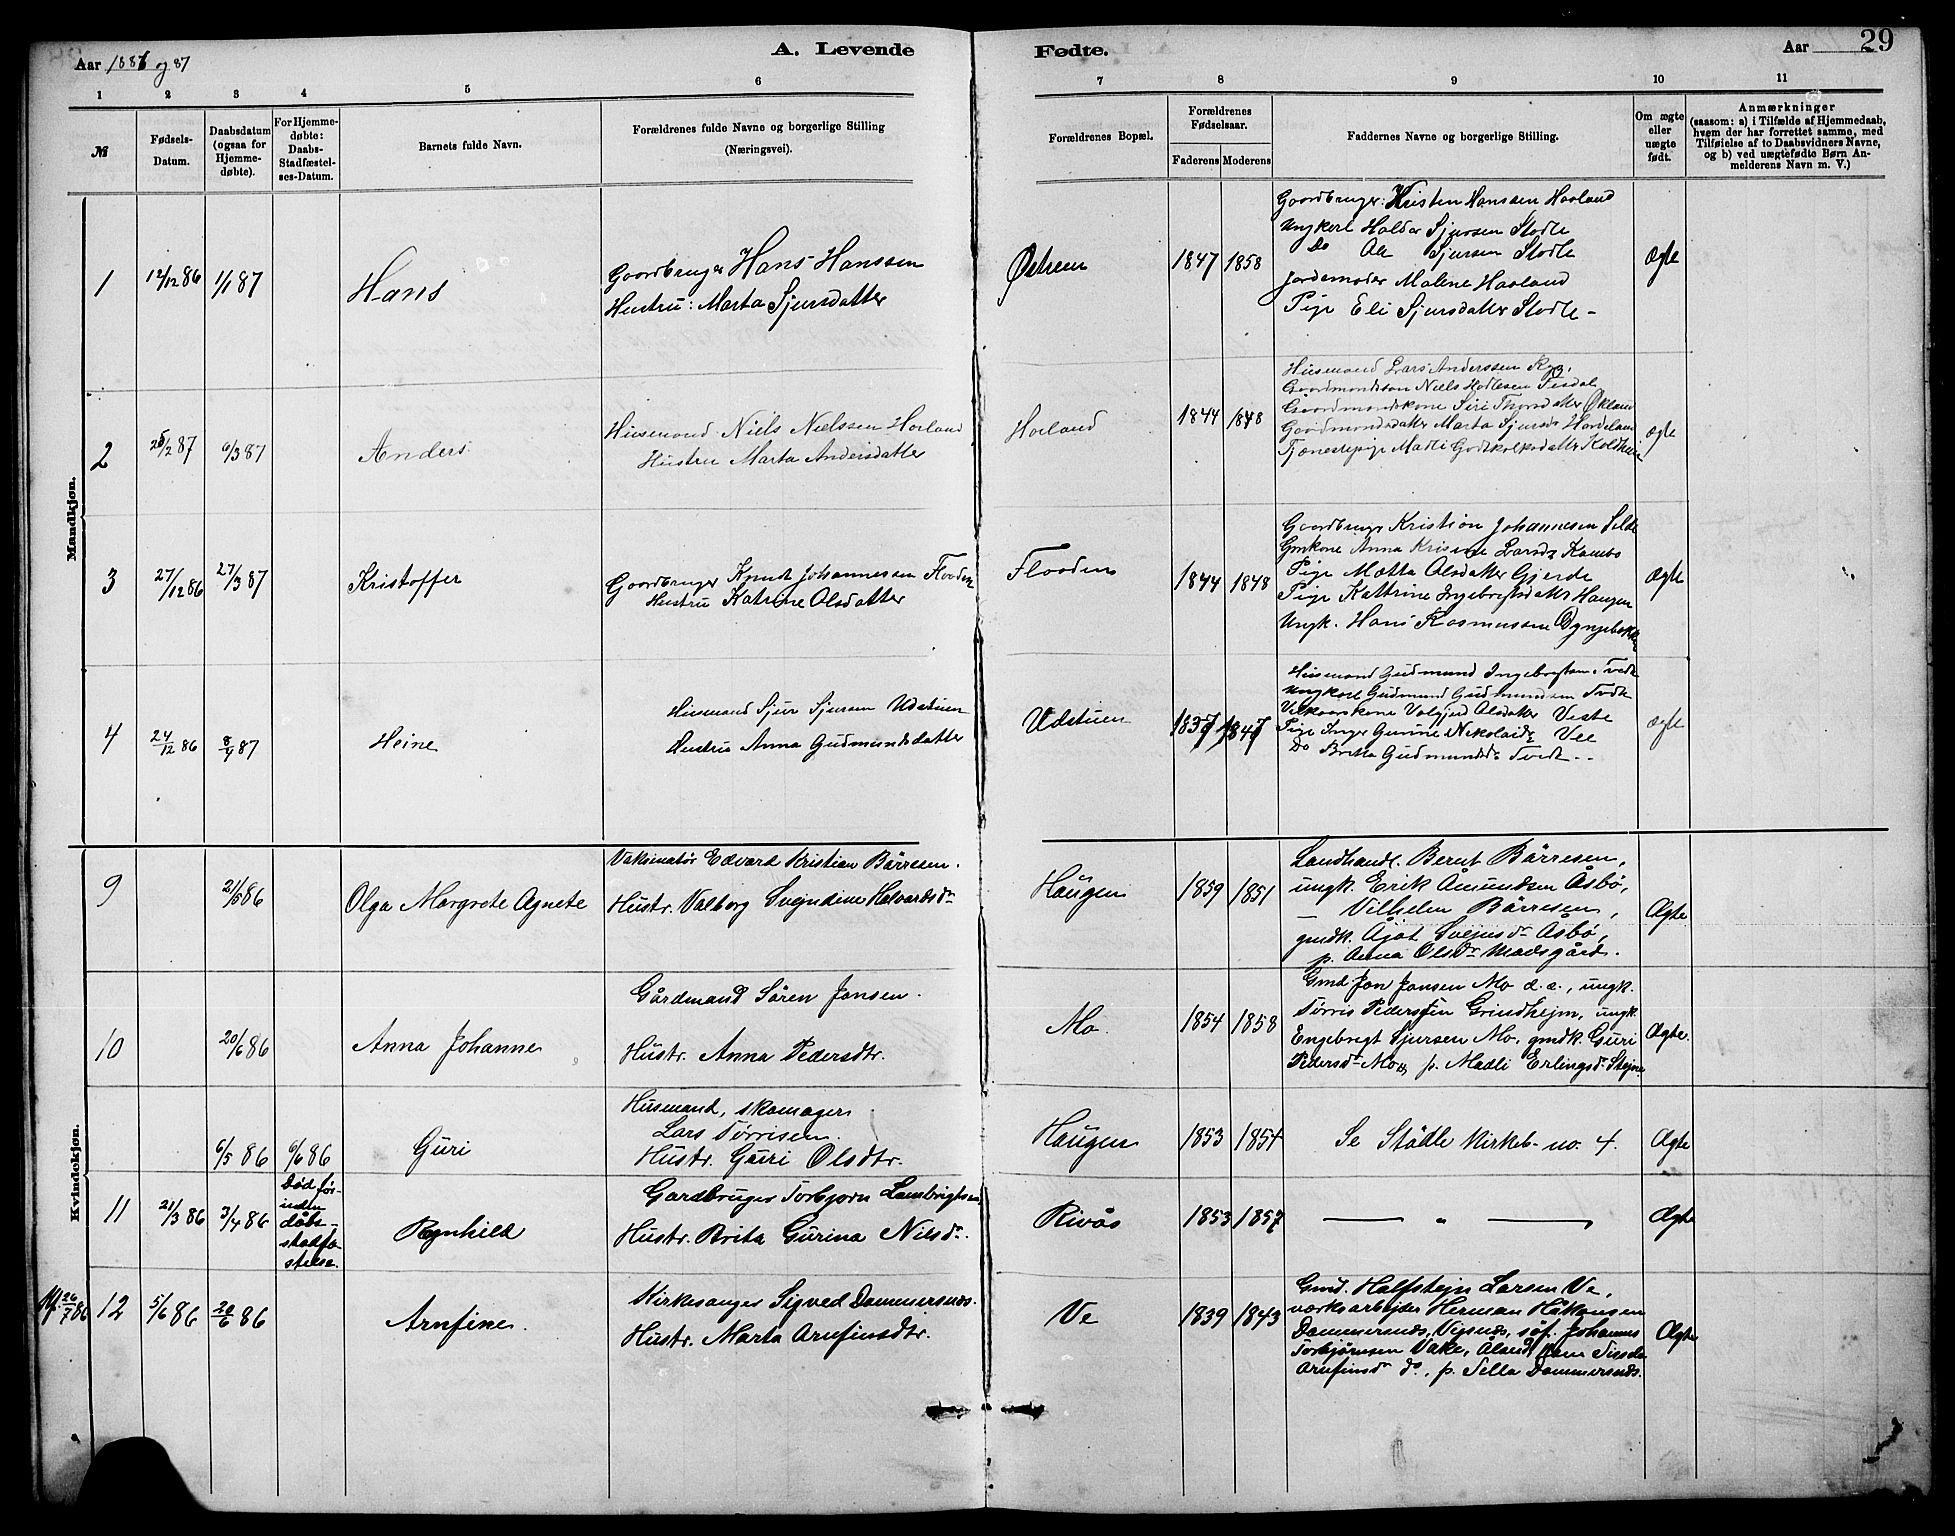 A. Levende Fødte.
Aar 1886 og 87
Aar
29
1 2 3 4 5 6 7 8 9 10 11
№
Fødsels-
Datum.
Daabsdatum
(ogsaa for
Hjemme-
døbte).
For Hjemme-
døbte:
Daabs-
Stadfæstel-
ses-Datum.
Barnets fulde Navn.
Forældrenes fulde Navne og borgerlige Stilling
(Næringsvei).
Forældrenes Bopæl.
Forældrenes
Fødselsaar.
Faderens Moderens
Faddernes Navne og borgerlige Stilling.
Om ægte
eller
uægte
født.
Anmærkninger
(saasom: a) i Tilfælde af Hjemmedaab,
hvem der har forrettet samme, med
Tilføielse af to Daabsvidners Navne,
og b) ved uægtefødte Børn An-
melderens Navn m. V.)
Mandkjøn.
1 12/12 86 1/1 87 Hans
Gaardbruger Hans Hanssen
Hustru: Marta Sjursdatter
Østrem 1847 1858
Gaardbruger: Kristen Hanssen Haaland
Ungkarl Haldor Sjursen Stødle
Do Ole Sjursen Stødle
Jordemoder Malene Haaland
Pige Eli Sjursdatter Stødle -
Ægte
2 25/2 87 6/3 87 Anders
Husmand Niels Nielssen Høiland
Hustru Marta Andersdatter
Høiland 1844 1848
Husmand Lars Anderssen
Gaardmandssøn Niels
Gaardmandskone Siri Thorsdatter Økland
Gaardmandsdatter Marta Sjursdr
Tjenestepige Madli
ægte
3 27/12 86 27/3 87 Kristoffer
Gaardbruger Knud Johannessen Flooden
Hustru Katrine Olsdatter
Flooden 1844 1848
Gaardbruger Kristian Johannesen Silde
Gmkone Anna Kristine Larsdr Kambo
Pige Mætta Olsdatter Gjerde
Pige Kattrine Ingebrigtsdatter Haugen
Ungk. Hans Rasmussen
Ægte
4 24/12 86 8/4 87 Heine
Husmand Sjur Sjursen Udstuen
Hustru Anna Gudmundsdatter
Udstuen 1837 1847
Husmand Gudmund Ingebrigtsen Tvedt
Ungkarl Gudmund Gudmundsen Tvedt
Vilkaarskone Valgjerd Olsdatter Veste
Pige Inger Gurine Nikolaidr Vee
Do Britta Gudmundsdr Tvedt..
ægte
Kvindekjøn.
9 21/5 86 Olga Margrete Agnete
Vaksinatør Edvard Kristian Börresen.
Hustr. Valborg Svejndine Halvardsdr
Haugen 1859 1851
Landhandl. Bernt Börresen,
ungk. Erik Åmundsen Åsbö,
— Vilhelm Börresen,
gmdk. Åjåt Svejnsdr Åsbö,
p. Anna Olsdr Madsgård.
Ægte
10 20/6 86 Anna Johanne
Gårdmand Sören Jonsen.
Hustr. Anna Pedersdtr.
Mo. 1854 1858
Gmd Jon Jonsen Mo d.e., ungk.
Tørris Pedersen Grindhejm, ungk.
Engebregt Sjursen Mo, gmdk. Guri
Pedersdr Mo, p. Madli Erlingsdr Stejne
Ægte.
6/5 86 6/6 86 Guri
Husmand, skomager
Lars Tørrisen.
Hustr. Guri Olsdtr.
Haugen 1853 1854
Se Stödle Kirkeb- no. 4.
Ægte
11 21/3 86 3/4 86
Død før-
inden
dåbs-
stadfæ-
stelse.
Ragnhild
Gardbruger Torbjørn Lambrigtsen
Hustr. Brita Gurina Nilsdr.
Rivås 1853 1857
— " —
Ægte
26/7 86
12 5/6 86 20/6 86 Arnfine.
Kirkesanger Sigved Dommersnæs.
Hustr. Marta Arnfinsdtr.
Ve 1839 1843
Gmd. Halfstejn Larsen Ve,
værksarbejder Herman Håkonsen
Dommersnæs, Vigsnæs, söf. Johannes
Torbjørnsen Våke, Åland,
Arnfinsdr do., p. Sella Dommersnæs.
Ægte